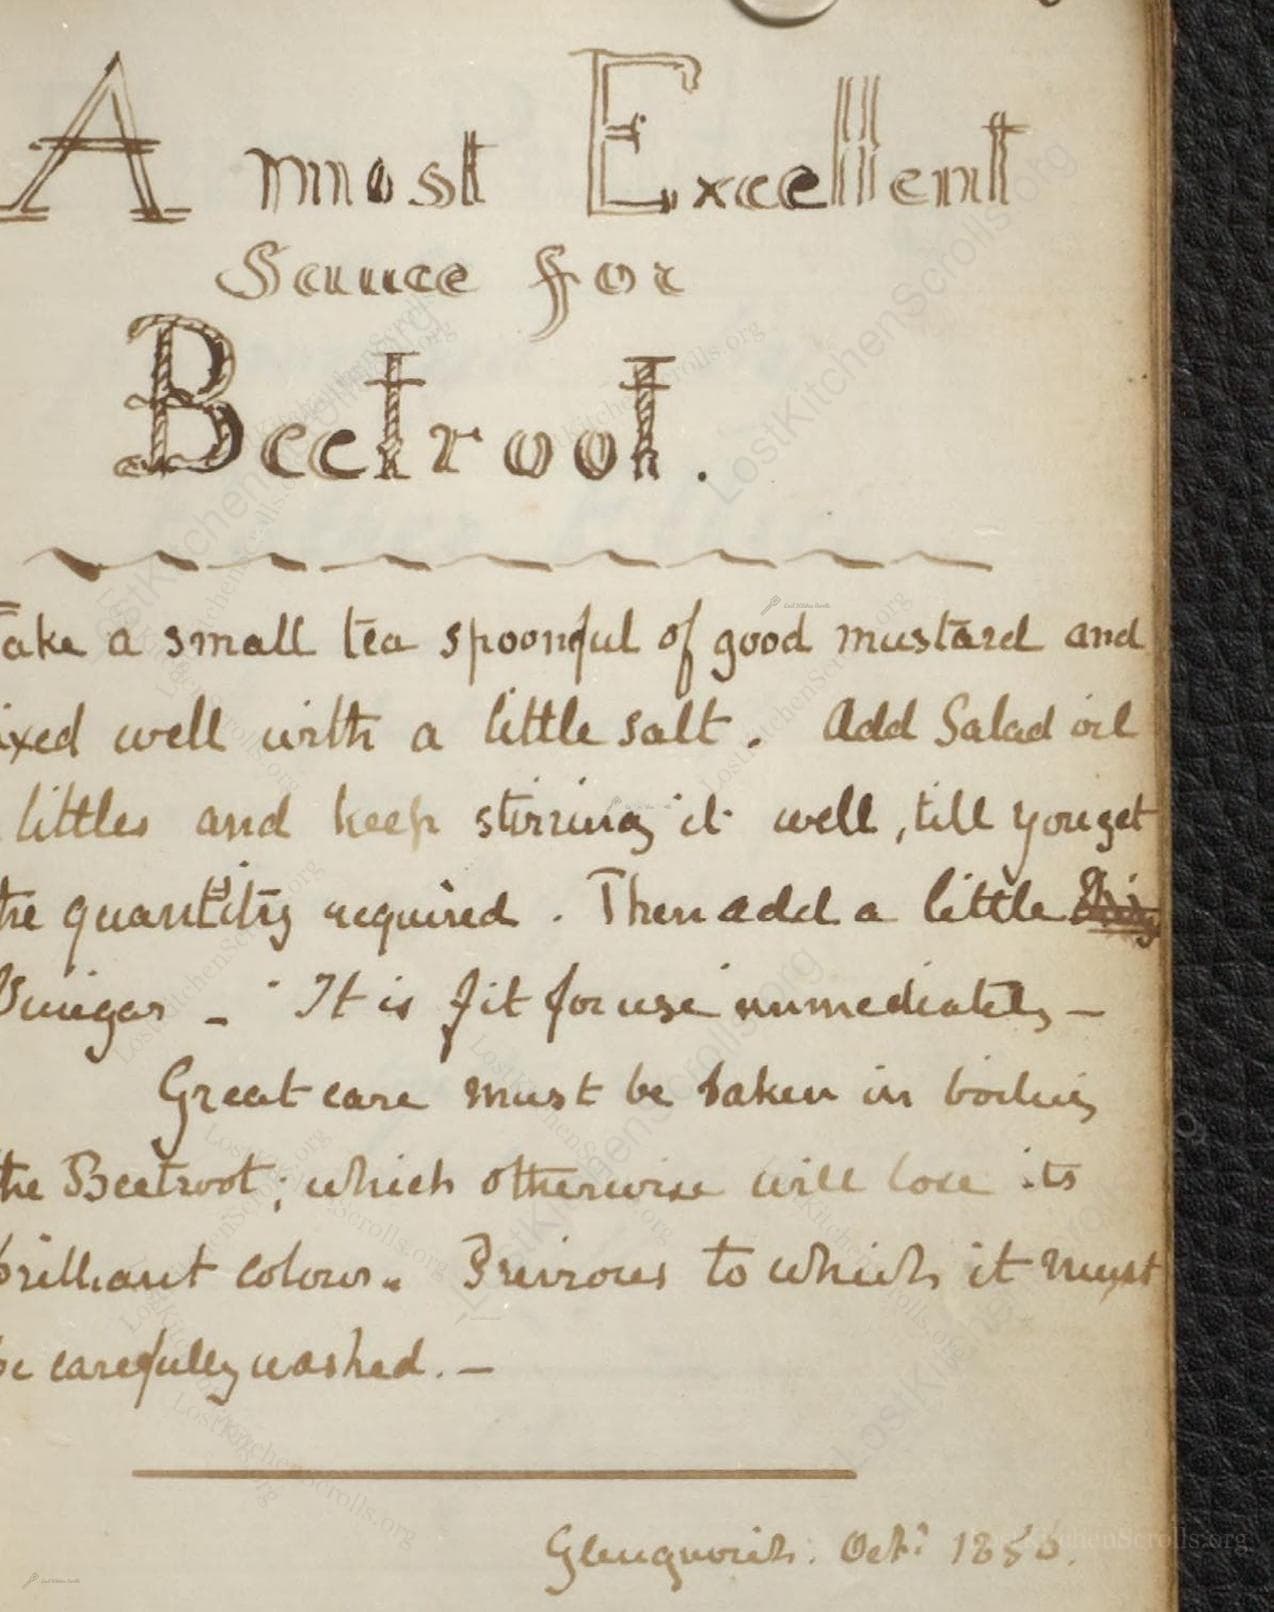 A most Excellent
Sauce for
Beetroot.
Take a small tea spoonful of good mustard and
ixed well with a little salt. Add Salad oil
littles and keep stirring it well, till you get
the quantity required. Then add a little
Vinigar - It is fit for use immediately -
Great care must be taken in boiling
the Beetroot; which otherwise will lose its
brilliant colour. Previous to which it must
be carefully washed. -
Glenquoich. Octr 1856.
LostKitchenScrolls.org